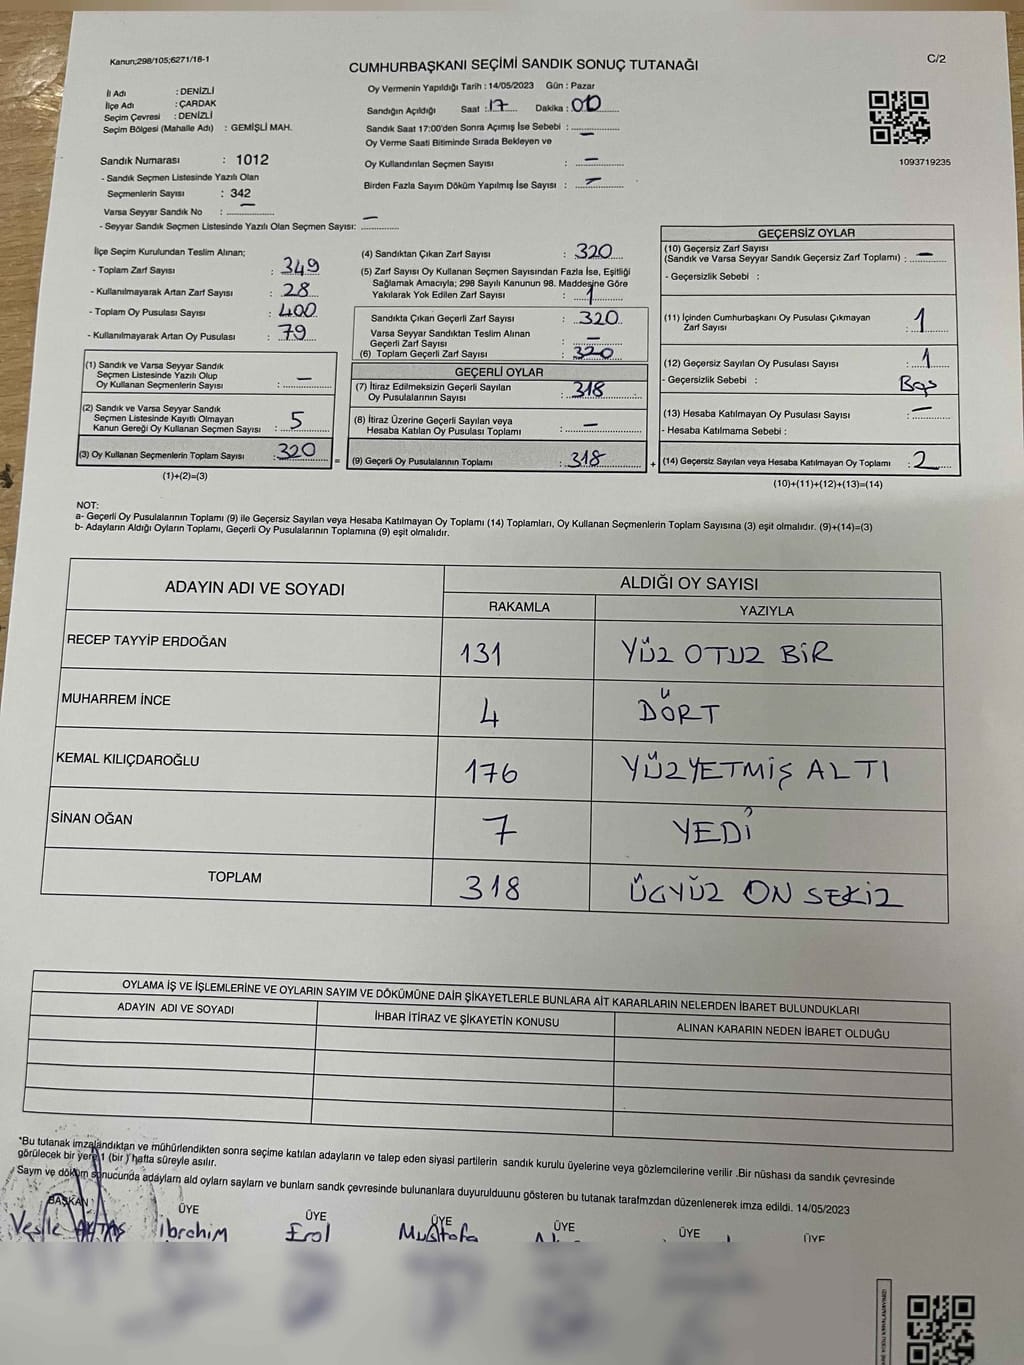 Kanun;298/105;6271/18-1
C/2
CUMHURBAŞKANI SEÇİMİ SANDIK SONUÇ TUTANAĞI
İl Adı : DENİZLİ
İlçe Adı : ÇARDAK
Seçim Çevresi : DENİZLİ
Seçim Bölgesi (Mahalle Adı) : GEMİŞLİ MAH.
Sandık Numarası : 1012
- Sandık Seçmen Listesinde Yazılı Olan
Seçmenlerin Sayısı : 342
Varsa Seyyar Sandık No : —
- Seyyar Sandık Seçmen Listesinde Yazılı Olan Seçmen Sayısı: —
Oy Vermenin Yapıldığı Tarih : 14/05/2023 Gün : Pazar
Sandığın Açıldığı Saat : 17 Dakika : 00
Sandık Saat 17:00'den Sonra Açımış İse Sebebi : —
Oy Verme Saati Bitiminde Sırada Bekleyen ve
Oy Kullandırılan Seçmen Sayısı : —
Birden Fazla Sayım Döküm Yapılmış İse Sayısı : —
1093719235
İlçe Seçim Kurulundan Teslim Alınan;
- Toplam Zarf Sayısı : 349
- Kullanılmayarak Artan Zarf Sayısı : 28
- Toplam Oy Pusulası Sayısı : 400
- Kullanılmayarak Artan Oy Pusulası : 79
(1) Sandık ve Varsa Seyyar Sandık
Seçmen Listesinde Yazılı Olup
Oy Kullanan Seçmenlerin Sayısı : —
(2) Sandık ve Varsa Seyyar Sandık
Seçmen Listesinde Kayıtlı Olmayan
Kanun Gereği Oy Kullanan Seçmen Sayısı : 5
(3) Oy Kullanan Seçmenlerin Toplam Sayısı : 320
(1)+(2)=(3)
(4) Sandıktan Çıkan Zarf Sayısı : 320
(5) Zarf Sayısı Oy Kullanan Seçmen Sayısından Fazla İse, Eşitliği
Sağlamak Amacıyla; 298 Sayılı Kanunun 98. Maddesine Göre
Yakılarak Yok Edilen Zarf Sayısı : 1
Sandıkta Çıkan Geçerli Zarf Sayısı : 320
Varsa Seyyar Sandıktan Teslim Alınan
Geçerli Zarf Sayısı : —
(6) Toplam Geçerli Zarf Sayısı : 320
GEÇERLİ OYLAR
(7) İtiraz Edilmeksizin Geçerli Sayılan
Oy Pusulalarının Sayısı : 318
(8) İtiraz Üzerine Geçerli Sayılan veya
Hesaba Katılan Oy Pusulası Toplamı : —
= (9) Geçerli Oy Pusulalarının Toplamı : 318 +
GEÇERSİZ OYLAR
(10) Geçersiz Zarf Sayısı
(Sandık ve Varsa Seyyar Sandık Geçersiz Zarf Toplamı) : —
- Geçersizlik Sebebi :
(11) İçinden Cumhurbaşkanı Oy Pusulası Çıkmayan
Zarf Sayısı : 1
(12) Geçersiz Sayılan Oy Pusulası Sayısı : 1
- Geçersizlik Sebebi :
(13) Hesaba Katılmayan Oy Pusulası Sayısı : —
- Hesaba Katılmama Sebebi :
(14) Geçersiz Sayılan veya Hesaba Katılmayan Oy Toplamı : 2
(10)+(11)+(12)+(13)=(14)
NOT:
a- Geçerli Oy Pusulalarının Toplamı (9) ile Geçersiz Sayılan veya Hesaba Katılmayan Oy Toplamı (14) Toplamları, Oy Kullanan Seçmenlerin Toplam Sayısına (3) eşit olmalıdır. (9)+(14)=(3)
b- Adayların Aldığı Oyların Toplamı, Geçerli Oy Pusulalarının Toplamına (9) eşit olmalıdır.
ADAYIN ADI VE SOYADI
ALDIĞI OY SAYISI
RAKAMLA YAZIYLA
RECEP TAYYİP ERDOĞAN 131 YÜZ OTUZ BİR
MUHARREM İNCE 4 DÖRT
KEMAL KILIÇDAROĞLU 176 YÜZYETMİŞ ALTI
SİNAN OĞAN 7 YEDİ
TOPLAM 318 ÜÇYÜZ ON SEKİZ
OYLAMA İŞ VE İŞLEMLERİNE VE OYLARIN SAYIM VE DÖKÜMÜNE DAİR ŞİKAYETLERLE BUNLARA AİT KARARLARIN NELERDEN İBARET BULUNDUKLARI
ADAYIN ADI VE SOYADI İHBAR İTİRAZ VE ŞİKAYETİN KONUSU ALINAN KARARIN NEDEN İBARET OLDUĞU
*Bu tutanak imzalandıktan ve mühürlendikten sonra seçime katılan adayların ve talep eden siyasi partilerin sandık kurulu üyelerine veya gözlemcilerine verilir .Bir nüshası da sandık çevresinde
görülecek bir yere 1 (bir) hafta süreyle asılır.
Sayım ve döküm sonucunda adayların ald oyların sayları ve bunların sandk çevresinde bulunanlara duyurulduunu gösteren bu tutanak tarafmzdan düzenlenerek imza edildi. 14/05/2023
BAŞKAN ÜYE ÜYE ÜYE ÜYE ÜYE ÜYE
İbrahim Erol Mustafa